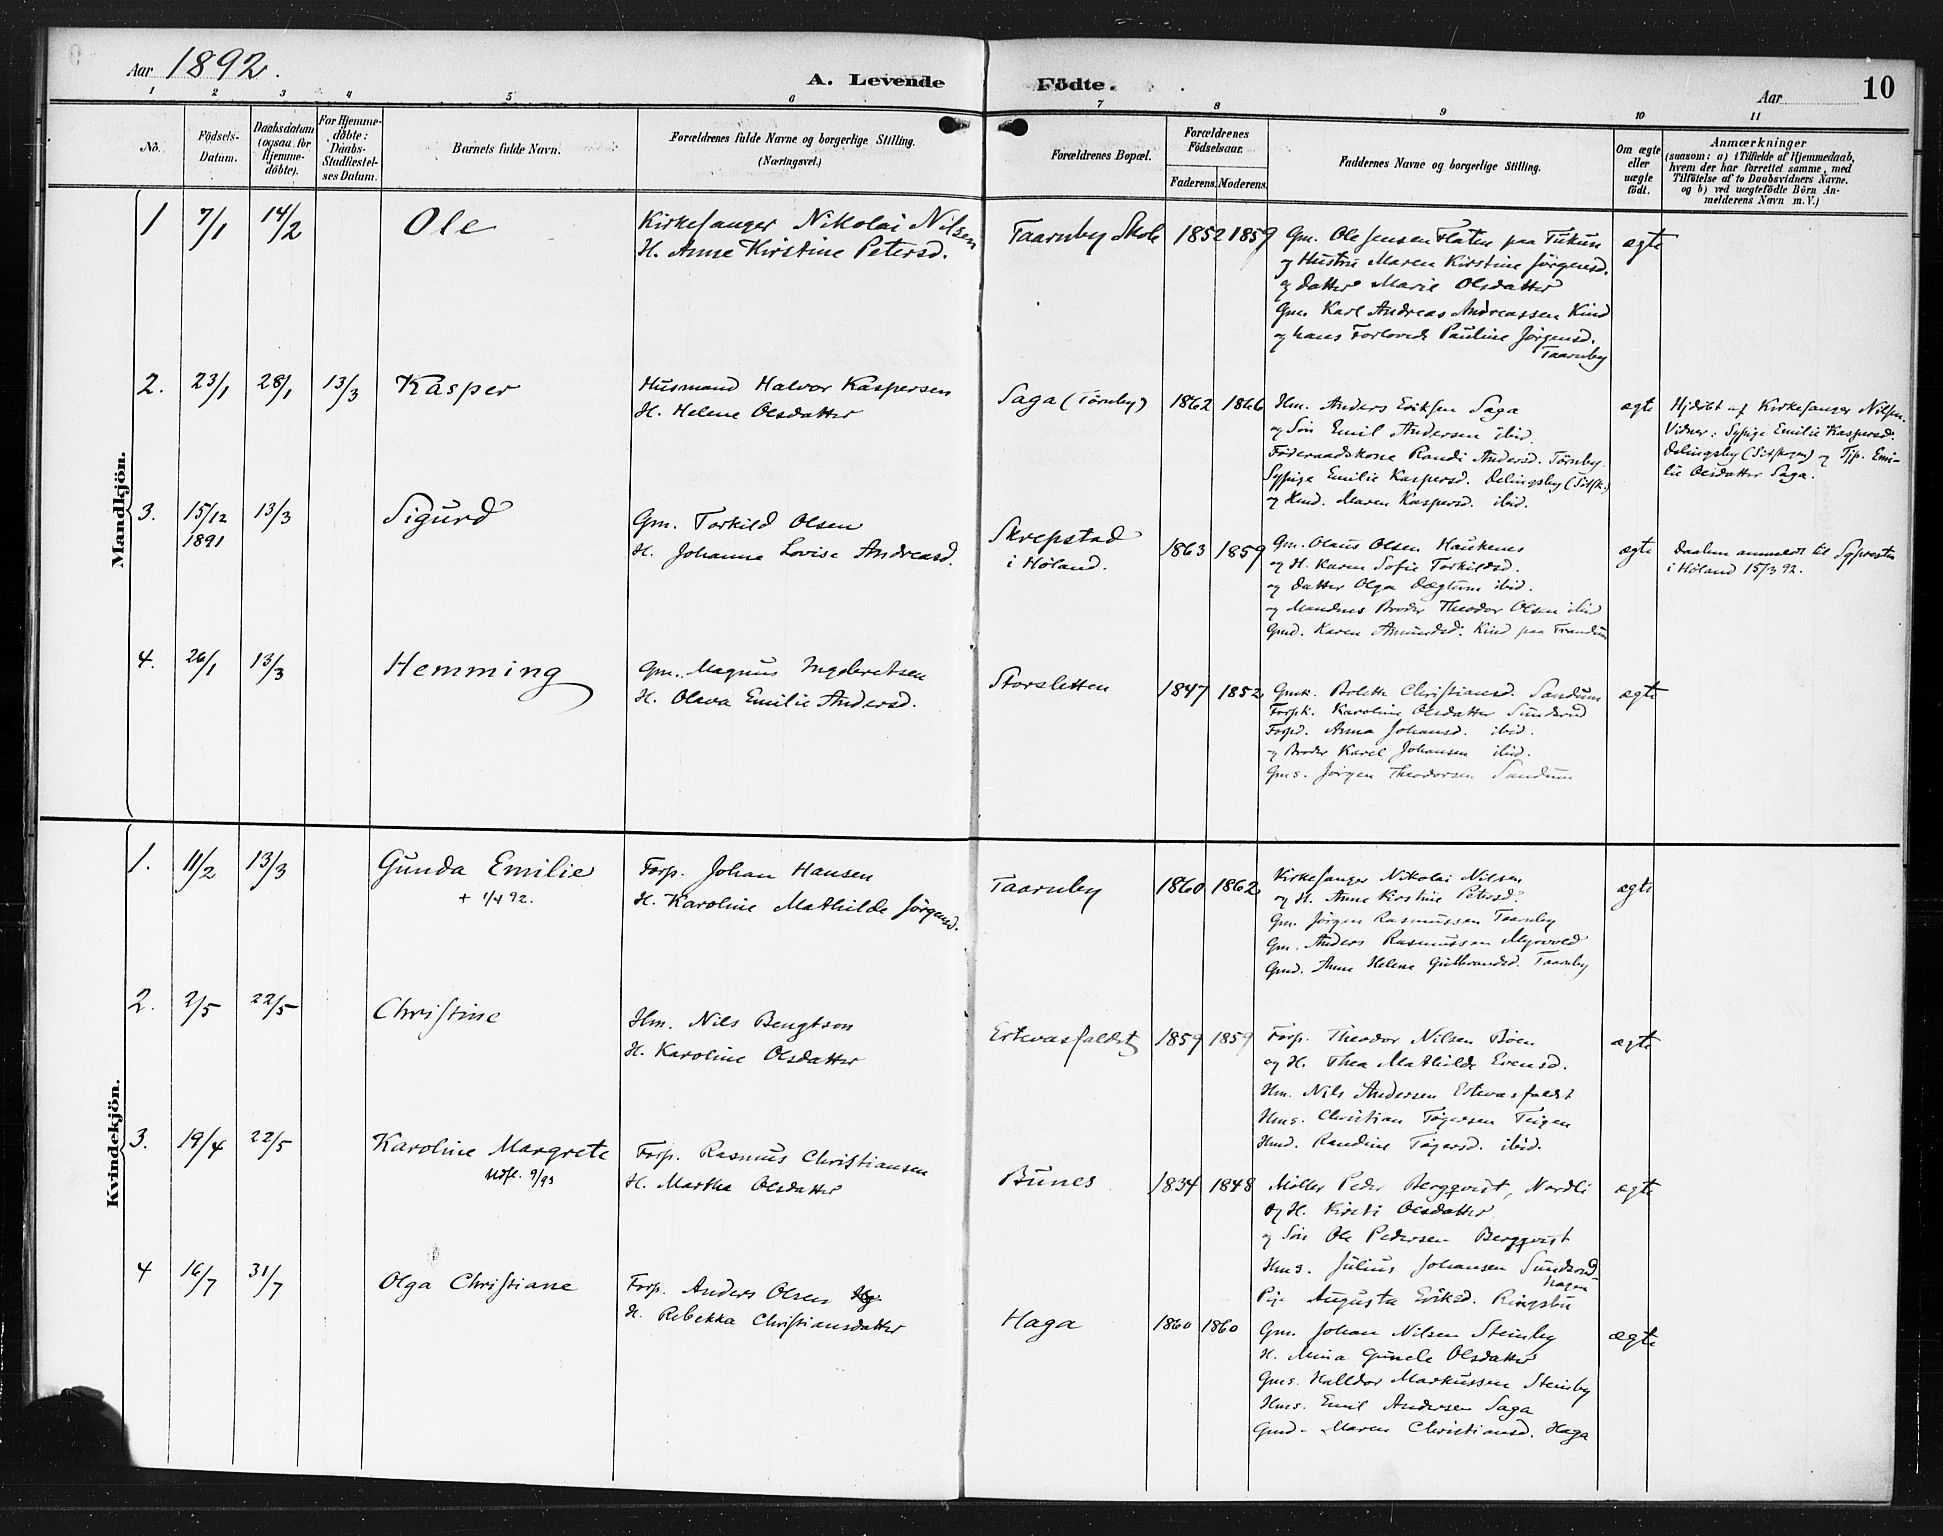 Aar 1892.
A. Levende Födte.
Aar
10
1 2 3 4 5 6 7 8 9 10 11
No.
Födsels-Datum.
Daabsdatum (ogsaa for Hjemme-döbte).
For Hjemme-döbte: Daabs-Stadfæstel-ses Datum.
Barnets fulde Navn.
Forældrenes fulde Navne og borgerlige Stilling. (Næringsvei.)
Forældrenes Bopæl.
Forældrenes Födselsaar.
Faderens. Moderens.
Faddernes Navne og borgerlige Stilling.
Om ægte eller uægte födt.
Anmærkninger
(saasom: a) i Tilfælde af Hjemmedaab,
hvem der har forrettet samme, med
Tilföielse af to Daabsvidners Navne.
og b) ved uægtefödte Börn An-
melderens Navn m. V.)
Mandkjön.
1 7/1 14/2 Ole
Kirkesanger Nikolai Nilsen
H. Anne Kirstine Petersd.
Taarnby Skole 1852 1859
Gm. Ole Jensen Flaten paa
og Hustru Maren Kirstine Jørgensd.
og datter Marie Olsdatter
Gm. Karl Andreas Andreassen Kind
og hans Forlovede Pauline Jørgensd.
Taarnby
ægte
2. 23/1 28/1 13/3 Kasper
Husmand Halvor Kaspersen
H. Helene Olsdatter
Saga (Tørnby) 1862 1866
Hm. Anders Eriksen Saga
og Søn Emil Andersen ibid.
Føderaadskone Randi Andersd. Tørnby.
Sypige Emilie Kaspersd. Delingsby (Setsk.)
og Hmd. Maren Kaspersd. ibid.
ægte
Hjdøbt af Kirkesanger Nilsen.
Vidner: Sypige Emilie Kaspersd.
Delingsby (Setskogen) og Tjp. Emi-
lie Olsdatter Saga.
3. 15/12 1891 13/3 Sigurd
Gm. Torkild Olsen
H. Johanne Lovise Andreasd.
Skrepstad
i Høland.
1863 1859
Gm. Olaus Olsen Haukenes
og H. Karen Sofie Torkildsd.
og Datter Olga Dægtum ibid.
og Mandens Broder Theodor Olsen ibid
Gmd. Karen Amundsd. Kind paa Trandum
ægte
Daaben anmeldt til Sgpresten
i Høland 15/3 92.
4. 26/1 13/3 Hemming
Gm. Magnus Ingebretsen
H. Olava Emilie Andersd.
Storsletten 1847 1852
Gmk. Bolette Christiansd. Sandum
Forpk. Karoline Olsdatter Sundsrud
Forpd. Anna Johansd. ibid.
og Broder Karel Johansen ibid.
Gms. Jørgen Theodorsen Sandum
ægte
Kvindekjön.
1. 11/2 13/3 Gunda Emilie
+ 1/4 92.
Forp. Johan Hansen
H. Karoline Mathilde Jørgensd.
Taarnby 1860 1862
Kirkesanger Nikolai Nilsen
og H. Anne Kirstine Petersd.
Gm. Jørgen Rasmussen Taarnby
Gm. Anders Rasmussen Myrvold
Gmd. Anne Helene Gulbrandsd. Taarnby
ægte
2. 2/5 22/5 Christine
Hm. Nils Bengtson
H. Karoline Olsdatter
Ertevasfaldet 1859 1859
Forp. Theodor Nilsen Bøen
og H. Thea Mathilde Evensd.
Hm. Nils Andersen Ertevasfaldet
Hms. Christian Tøgersen Teigen
Hmd. Randine Tøgersd. ibid.
ægte
3. 19/4 22/5 Karoline Margrete
Udfl. 9/93
Forp. Rasmus Christiansen
H. Martha Olsdatter
Bunes 1834 1848
Møller Peder Bergqvist, Nordli
og H. Kirsti Olsdatter
og Søn Ole Pedersen Bergqvist
Hms. Julius Johansen Sundsrud-
hagen
Pige Augusta Eriksd. Ringsbu
ægte
4 16/7 31/7 Olga Christiane
Forp. Anders Olsen
H. Rebekka Christiansdatter
Haga 1860 1860
Gm. Johan Nilsen Steinby
H. Mina Gunele Olsdatter
Gms. Halldor Markussen Steinby
Hms. Emil Andersen Saga
Gmd. Maren Christiansd. Haga
ægte